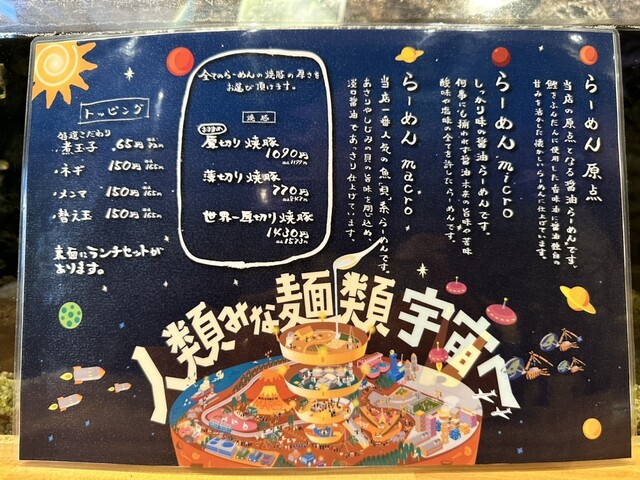 らーめん 原点
当店の原点となる醤油らーめんです。
鰹をふんだんに使用した香味油に醤油独自の
甘みを活かした懐かしいらーめんに仕上げています。
らーめん micro
しっかり味の醤油らーめんです。
何事にも捕われず醤油本来の旨味や苦味
酸味や塩味の全てを許したらーめんです。
らーめん macro
当店一番人気の魚貝系らーめんです。
あさりやしじみの貝の旨味を閉じ込め、
淡口醤油であっさり仕上げています。
全てのらーめんの焼豚の厚さを
お選び頂けます。
焼豚
おすすめ
厚切り焼豚
1090円
税込1199円
薄切り焼豚
770円
税込847円
世界一厚切り焼豚
1430円
税込1573円
トッピング
特選こだわり
煮玉子 65円 税込72円
・ネギ 150円 税込165円
・メンマ 150円 税込165円
・替え玉 150円 税込165円
裏面にランチセットが
あります。
人類みな麺類 宇宙へ